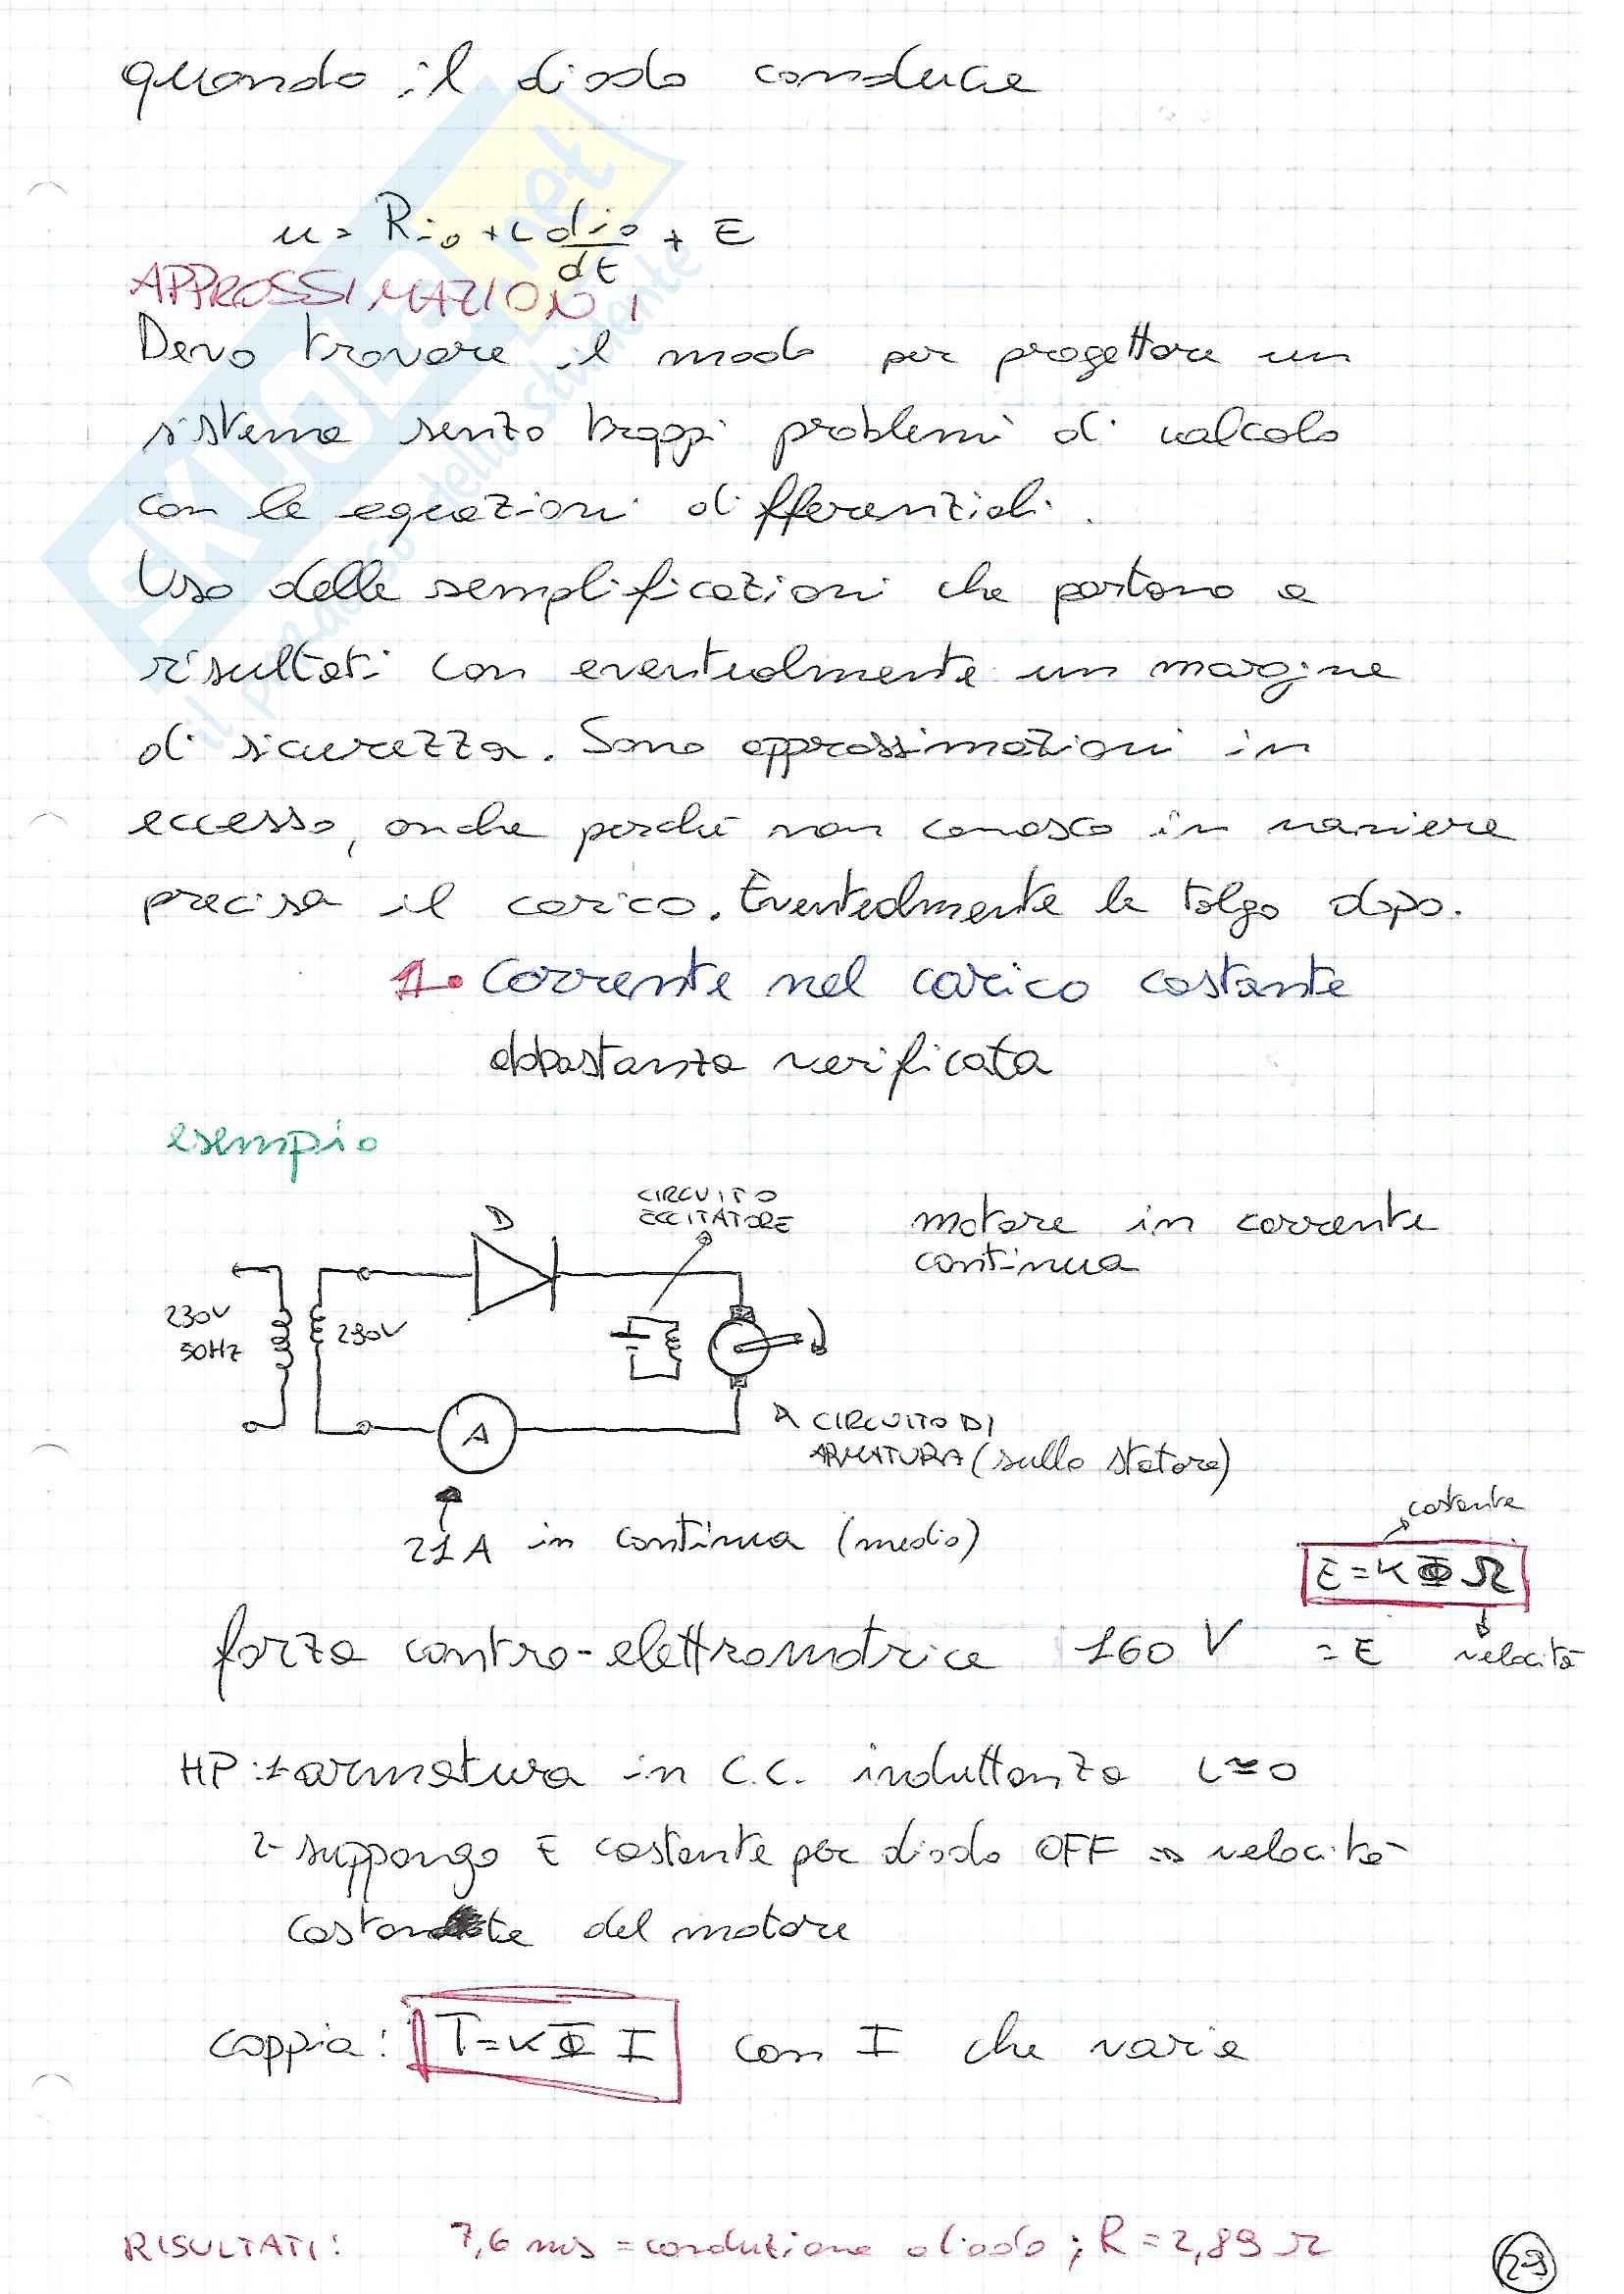 quando il diodo conduce
u = Rio + L dio/dt + E
APPROSSIMAZIONI
Devo trovare il modo per progettare un
sistema senza troppi problemi di calcolo
con le equazioni differenziali.
Uso delle semplificazioni che portano a
risultati con eventualmente un margine
di sicurezza. Sono approssimazioni in
eccesso, anche perché non conosco in maniera
precisa il carico. Eventualmente le tolgo dopo.
1. Corrente nel carico costante
abbastanza verificata
esempio
CIRCUITO
ECCITATORE
D
motore in corrente
continua
230V
50Hz
230V
A
CIRCUITO DI
ARMATURA (sullo statore)
21A in continua (medio)
costante
E = KΦΩ
forza contro-elettromotrice 160 V = E
velocità
HP: 1- armatura in C.C. induttanza L≃0
2- suppongo E costante per diodo OFF ⇒ velocità
costante del motore
coppia: T=KΦ I con I che varia
RISULTATI: 7,6 ms = conduzione diodo ; R = 2,89 Ω
29
SKUOLA.net
il paradiso dello studente